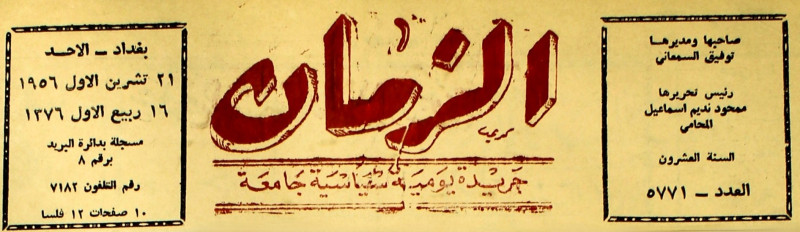 صاحبها ومديرها
توفيق السمعاني
رئيس تحريرها
ممحود نديم اسماعيل
المحامي
السنة العشرون
العدد – ٥٧٧١
الزمان
جريدة يومية سياسية جامعة
بغداد – الاحد
٢١ تشرين الاول ١٩٥٦
١٦ ربيع الاول ١٣٧٦
مسجلة بدائرة البريد
برقم ٨
رقم التلفون ٧١٨٢
١٠ صفحات ١٢ فلسا